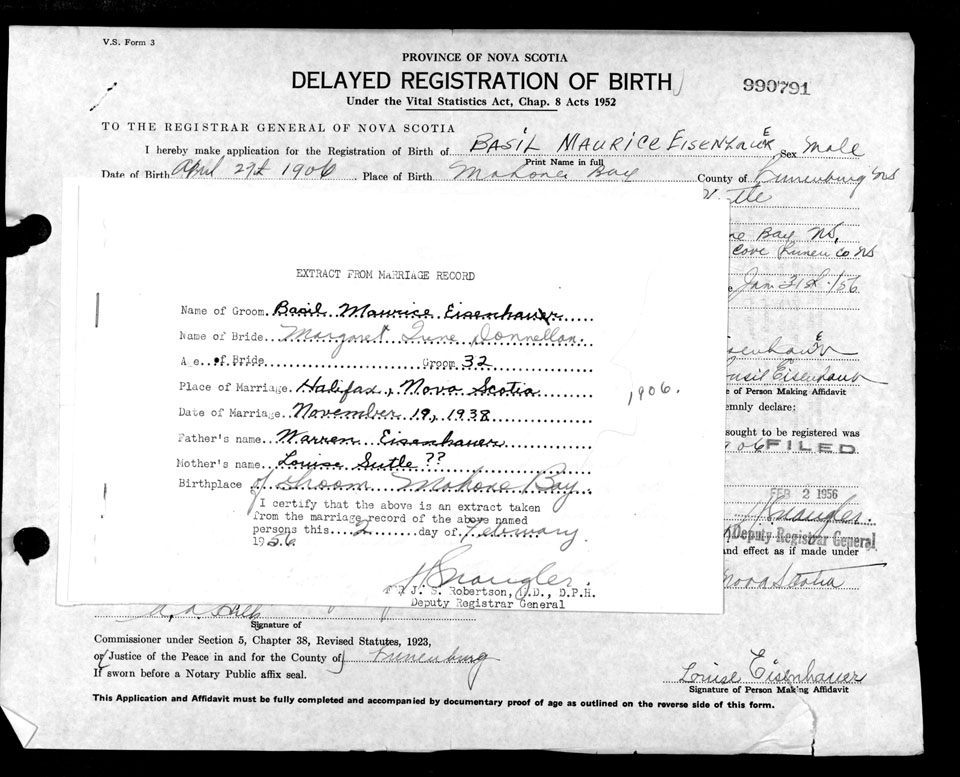 V.S. Form 3
PROVINCE OF NOVA SCOTIA
DELAYED REGISTRATION OF BIRTH
990791
Under the Vital Statistics Act, Chap. 8 Acts 1952
TO THE REGISTRAR GENERAL OF NOVA SCOTIA
I hereby make application for the Registration of Birth of BASIL MAURICE EISENHAUER Sex Male
Print Name in full
Date of Birth April 29th 1906 Place of Birth Mahone Bay County of Lunenburg NS
Bay NS,
Cove Lunen Co NS
Jan 31st /56
EXTRACT FROM MARRIAGE RECORD
Name of Groom Basil Maurice Eisenhauer
Name of Bride Margaret June Donnellan
Age of Bride Groom 32
Place of Marriage Halifax, Nova Scotia
Date of Marriage November 19, 1938
Father's name Warren Eisenhauer
Mother's name Louise Sutle ??
Birthplace of Groom Mahone Bay
I certify that the above is an extract taken
from the marriage record of the above named
persons this 2 day of February
1956
HSnaugler.
J. S. Robertson, M.D., D.P.H.
Deputy Registrar General
1906.
e of Person Making Affidavit
emnly declare:
sought to be registered was
06 FILED
FEB 2 1956
Deputy Registrar General
and effect as if made under
Nova Scotia
Signature of
Commissioner under Section 5, Chapter 38, Revised Statutes, 1923,
or Justice of the Peace in and for the County of Lunenburg
If sworn before a Notary Public affix seal.
Louise Eisenhauer
Signature of Person Making Affidavit
This Application and Affidavit must be fully completed and accompanied by documentary proof of age as outlined on the reverse side of this form.